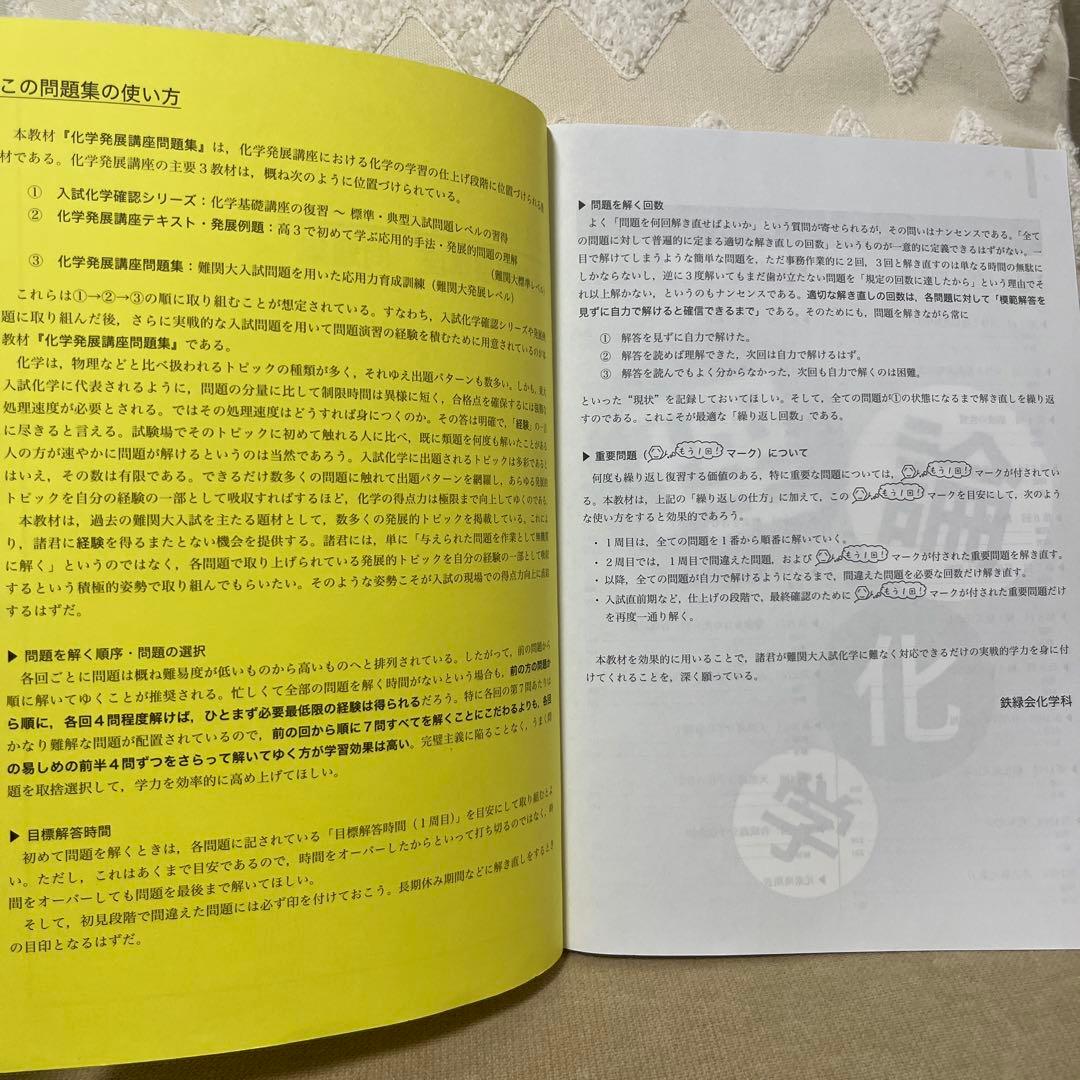 この問題集の使い方
本教材『化学発展講座問題集』は，化学発展講座における化学の学習の仕上げ段階に位置づけられる教
材である。化学発展講座の主要３教材は，概ね次のように位置づけられている。
① 入試化学確認シリーズ：化学基礎講座の復習 ～ 標準・典型入試問題レベルの習得
② 化学発展講座テキスト・発展例題：高３で初めて学ぶ応用的手法・発展的問題の理解
（難関大標準レベル）
③ 化学発展講座問題集：難関大入試問題を用いた応用力育成訓練（難関大発展レベル）
これらは①→②→③の順に取り組むことが想定されている。すなわち，入試化学確認シリーズや発展例
題に取り組んだ後，さらに実戦的な入試問題を用いて問題演習の経験を積むために用意されているのが本
教材『化学発展講座問題集』である。
化学は，物理などと比べ扱われるトピックの種類が多く，それゆえ出題パターンも数多い。しかも，東大
入試化学に代表されるように，問題の分量に比して制限時間は異様に短く，合格点を確保するには強烈な
処理速度が必要とされる。ではその処理速度はどうすれば身につくのか。その答は明確で，「経験」の一言
に尽きると言える。試験場でそのトピックに初めて触れる人に比べ，既に類題を何度も解いたことがある
人の方が速やかに問題が解けるというのは当然であろう。入試化学に出題されるトピックは多彩であると
はいえ，その数は有限である。できるだけ数多くの問題に触れて出題パターンを網羅し，あらゆる発展的
トピックを自分の経験の一部として吸収すればするほど，化学の得点力は極限まで向上してゆくのである。
本教材は，過去の難関大入試を主たる題材として，数多くの発展的トピックを掲載している。これによ
り，諸君に経験を得るまたとない機会を提供する。諸君には，単に「与えられた問題を作業として無機質
に解く」というのではなく，各問題で取り上げられている発展的トピックを自分の経験の一部として吸収
するという積極的姿勢で取り組んでもらいたい。そのような姿勢こそが入試の現場での得点力向上に直結
するはずだ。
▶ 問題を解く順序・問題の選択
各回ごとに問題は概ね難易度が低いものから高いものへと排列されている。したがって，前の問題から
順に解いてゆくことが推奨される。忙しくて全部の問題を解く時間がないという場合も，前の方の問題か
ら順に，各回４問程度解けば，ひとまず必要最低限の経験は得られるだろう。特に各回の第７問あたりは
かなり難解な問題が配置されているので，前の回から順に７問すべてを解くことにこだわるよりも，各回
の易しめの前半４問ずつをさらって解いてゆく方が学習効果は高い。完璧主義に陥ることなく，うまく問
題を取捨選択して，学力を効率的に高め上げてほしい。
▶ 目標解答時間
初めて問題を解くときは，各問題に記されている「目標解答時間（１周目）」を目安にして取り組むとよ
い。ただし，これはあくまで目安であるので，時間をオーバーしたからといって打ち切るのではなく，時
間をオーバーしても問題を最後まで解いてほしい。
そして，初見段階で間違えた問題には必ず印を付けておこう。長期休み期間などに解き直しをするとき
の目印となるはずだ。
▶ 問題を解く回数
よく「問題を何回解き直せばよいか」という質問が寄せられるが，その問いはナンセンスである。「全て
の問題に対して普遍的に定まる適切な解き直しの回数」というものが一意的に定義できるはずがない。一
目で解けてしまうような簡単な問題を，ただ事務作業的に２回，３回と解き直すのは単なる時間の無駄に
しかならないし，逆に３度解いてもまだ歯が立たない問題を「規定の回数に達したから」という理由でそ
れ以上解かない，というのもナンセンスである。適切な解き直しの回数は，各問題に対して「模範解答を
見ずに自力で解けると確信できるまで」である。そのためにも，問題を解きながら常に
① 解答を見ずに自力で解けた。
② 解答を読めば理解できた，次回は自力で解けるはず。
③ 解答を読んでもよく分からなかった，次回も自力で解くのは困難。
といった“現状”を記録しておいてほしい。そして，全ての問題が①の状態になるまで解き直しを繰り返
すのである。これこそが最適な「繰り返し回数」である。
▶ 重要問題（もう1回!マーク）について
何度も繰り返し復習する価値のある，特に重要な問題については，もう1回!マークが付されてい
る。本教材は，上記の「繰り返しの仕方」に加えて，このもう1回!マークを目安にして，次のよう
な使い方をすると効果的であろう。
・１周目は，全ての問題を１番から順番に解いていく。
・２周目では，１周目で間違えた問題，およびもう1回!マークが付された重要問題を解き直す。
・以降，全ての問題が自力で解けるようになるまで，間違えた問題を必要な回数だけ解き直す。
・入試直前期など，仕上げの段階で，最終確認のためにもう1回!マークが付された重要問題だけ
を再度一通り解く。
本教材を効果的に用いることで，諸君が難関大入試化学に難なく対応できるだけの実戦的学力を身に付
けてくれることを，深く願っている。
鉄緑会化学科